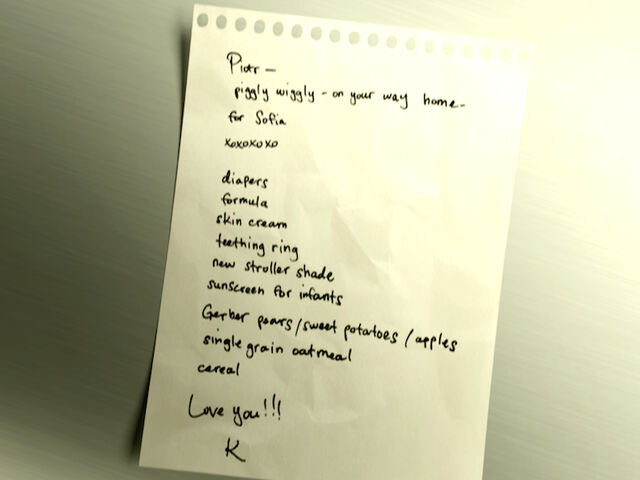 Piotr —
piggly wiggly - on your way home -
for Sofia
xoxoxoxo
diapers
formula
skin cream
teething ring
new stroller shade
sunscreen for infants
Gerber pears/sweet potatoes/apples
single grain oatmeal
cereal
Love you!!!
K